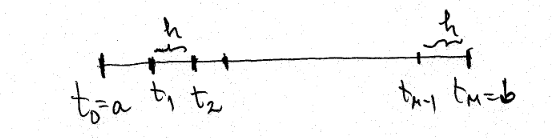 h h
t₀=a t₁ t₂ tₘ₋₁ tₘ=b